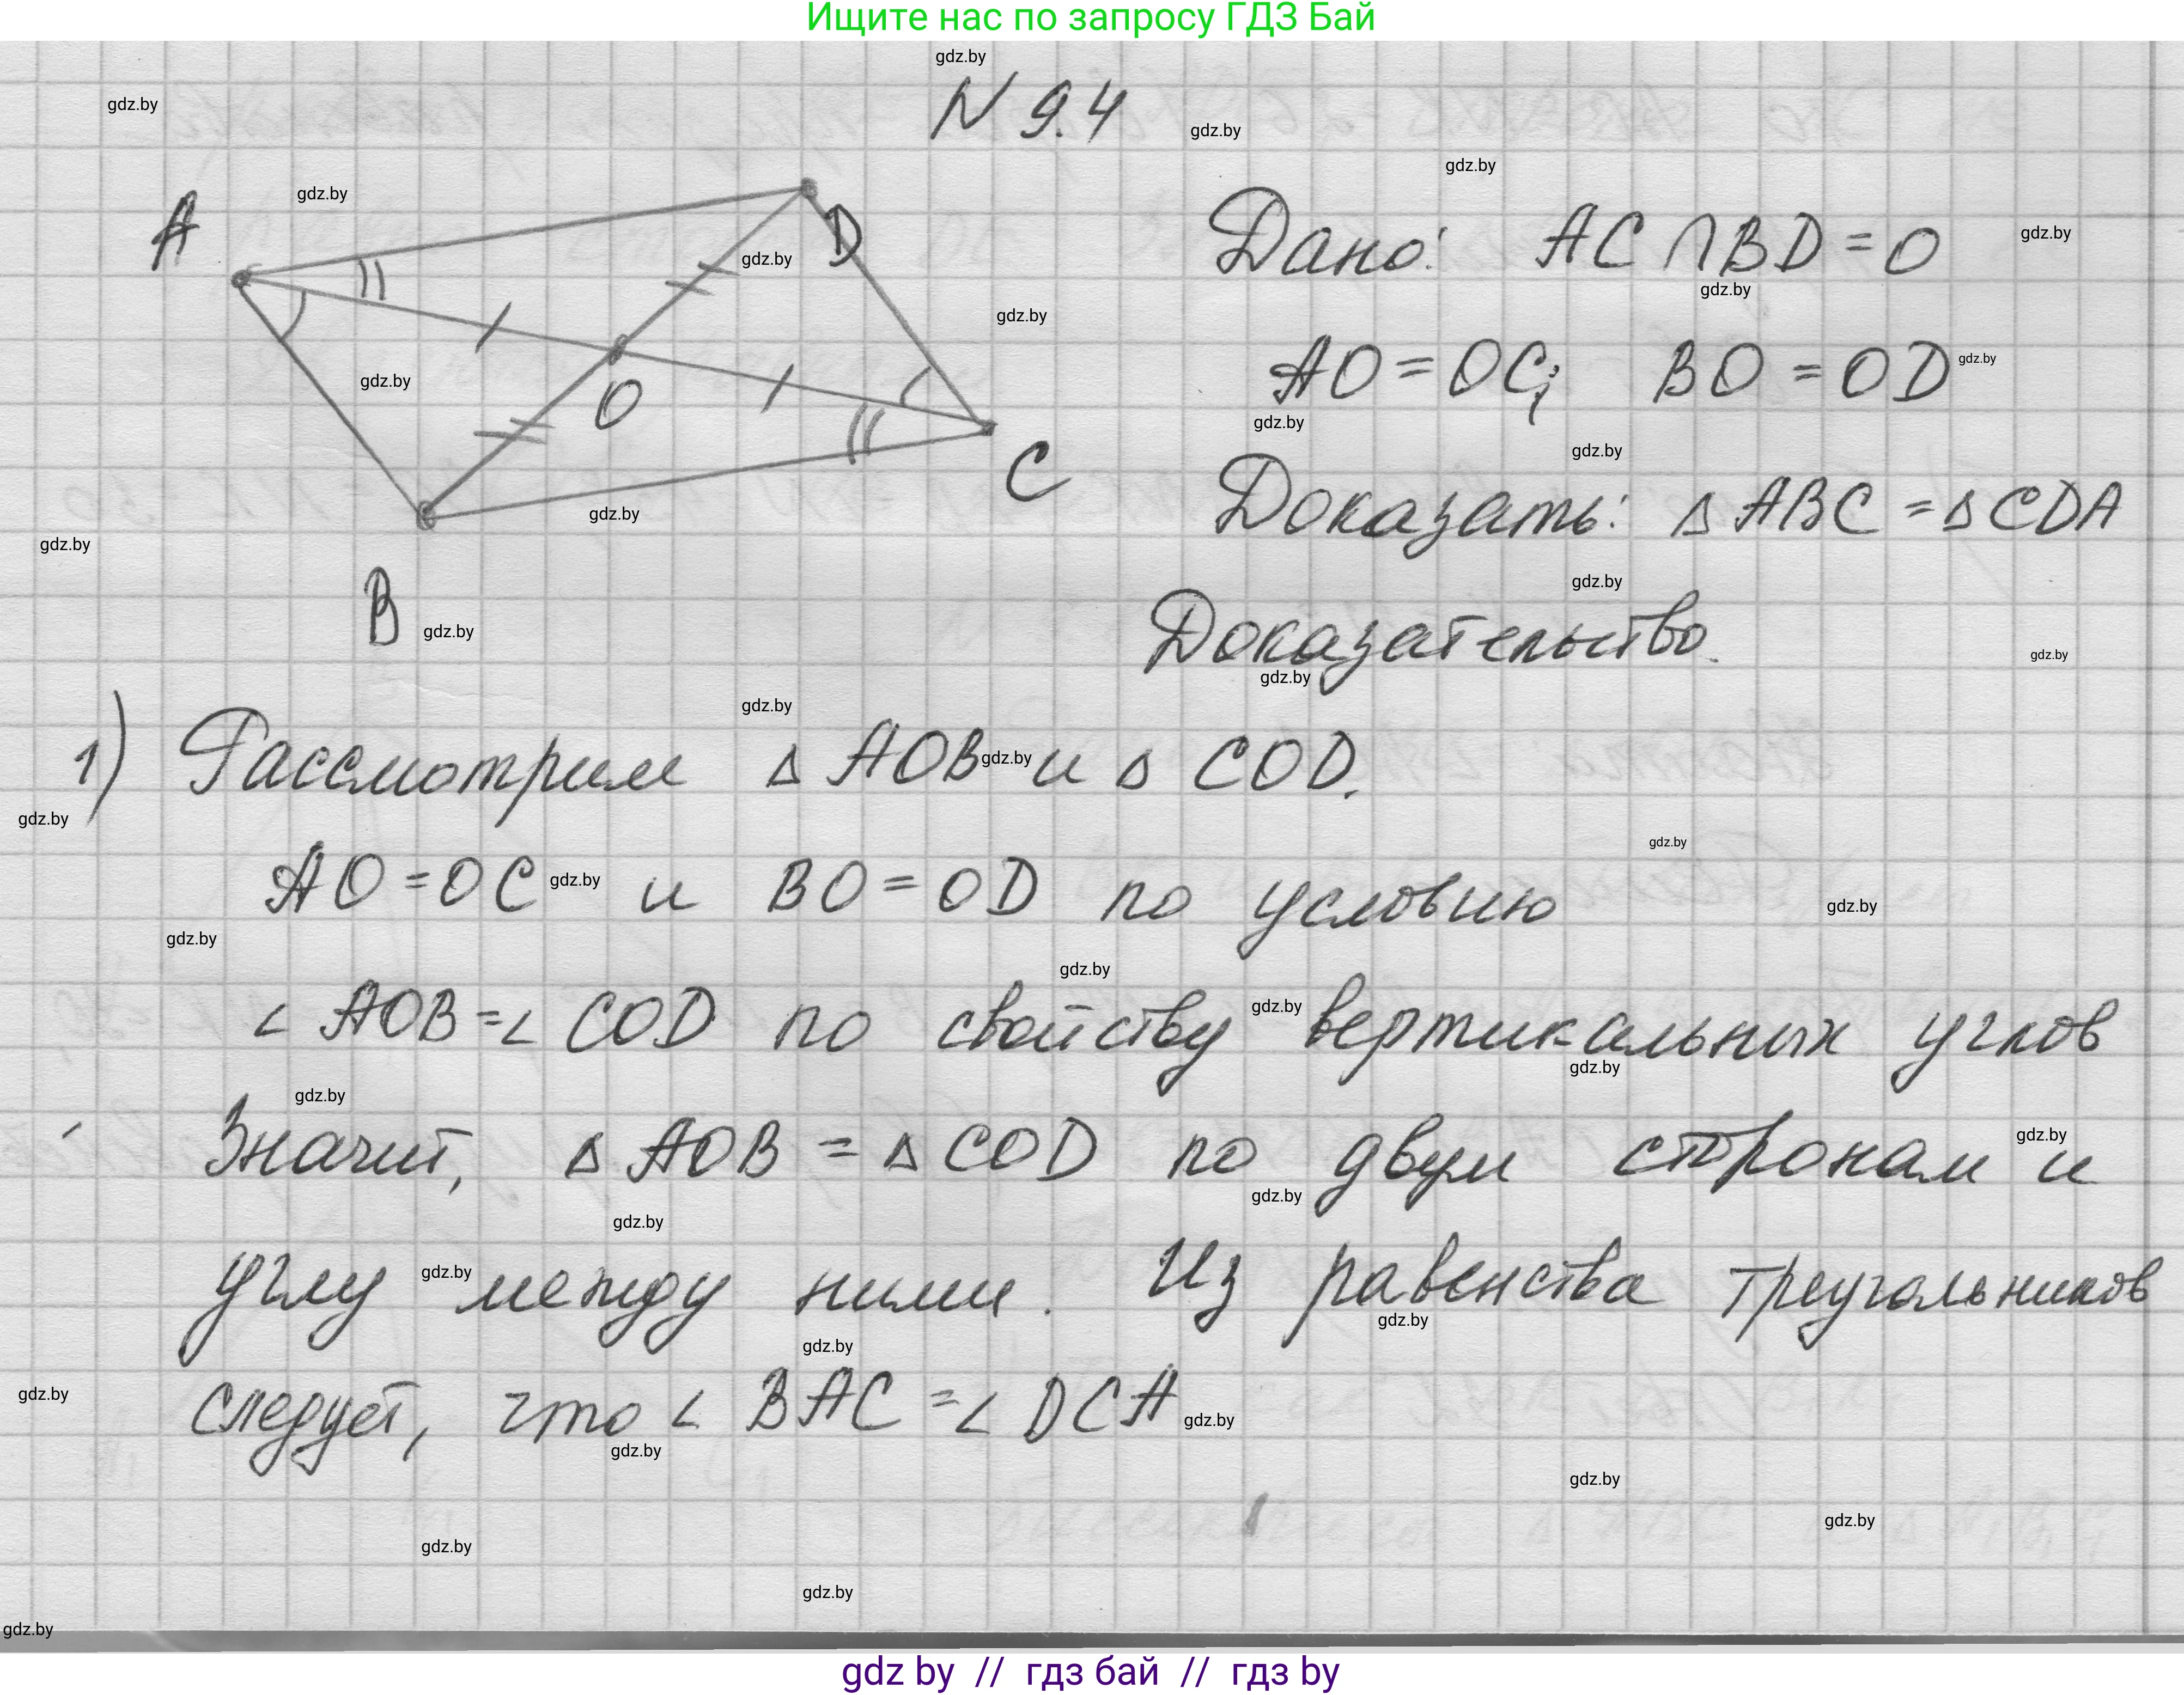 Ищите нас по запросу ГДЗ Бай
N 9.4
A
D
O
C
B
Дано: AC ∩ BD = O
AO = OC; BO = OD
Доказать: △ ABC = △ CDA
Доказательство.
1) Рассмотрим △ AOB и △ COD.
AO = OC и BO = OD по условию
∠ AOB = ∠ COD по свойству вертикальных углов
Значит, △ AOB = △ COD по двум сторонам и
углу между ними. Из равенства треугольников
следует, что ∠ BAC = ∠ DCA
gdz.by
gdz by // гдз бай // гдз by